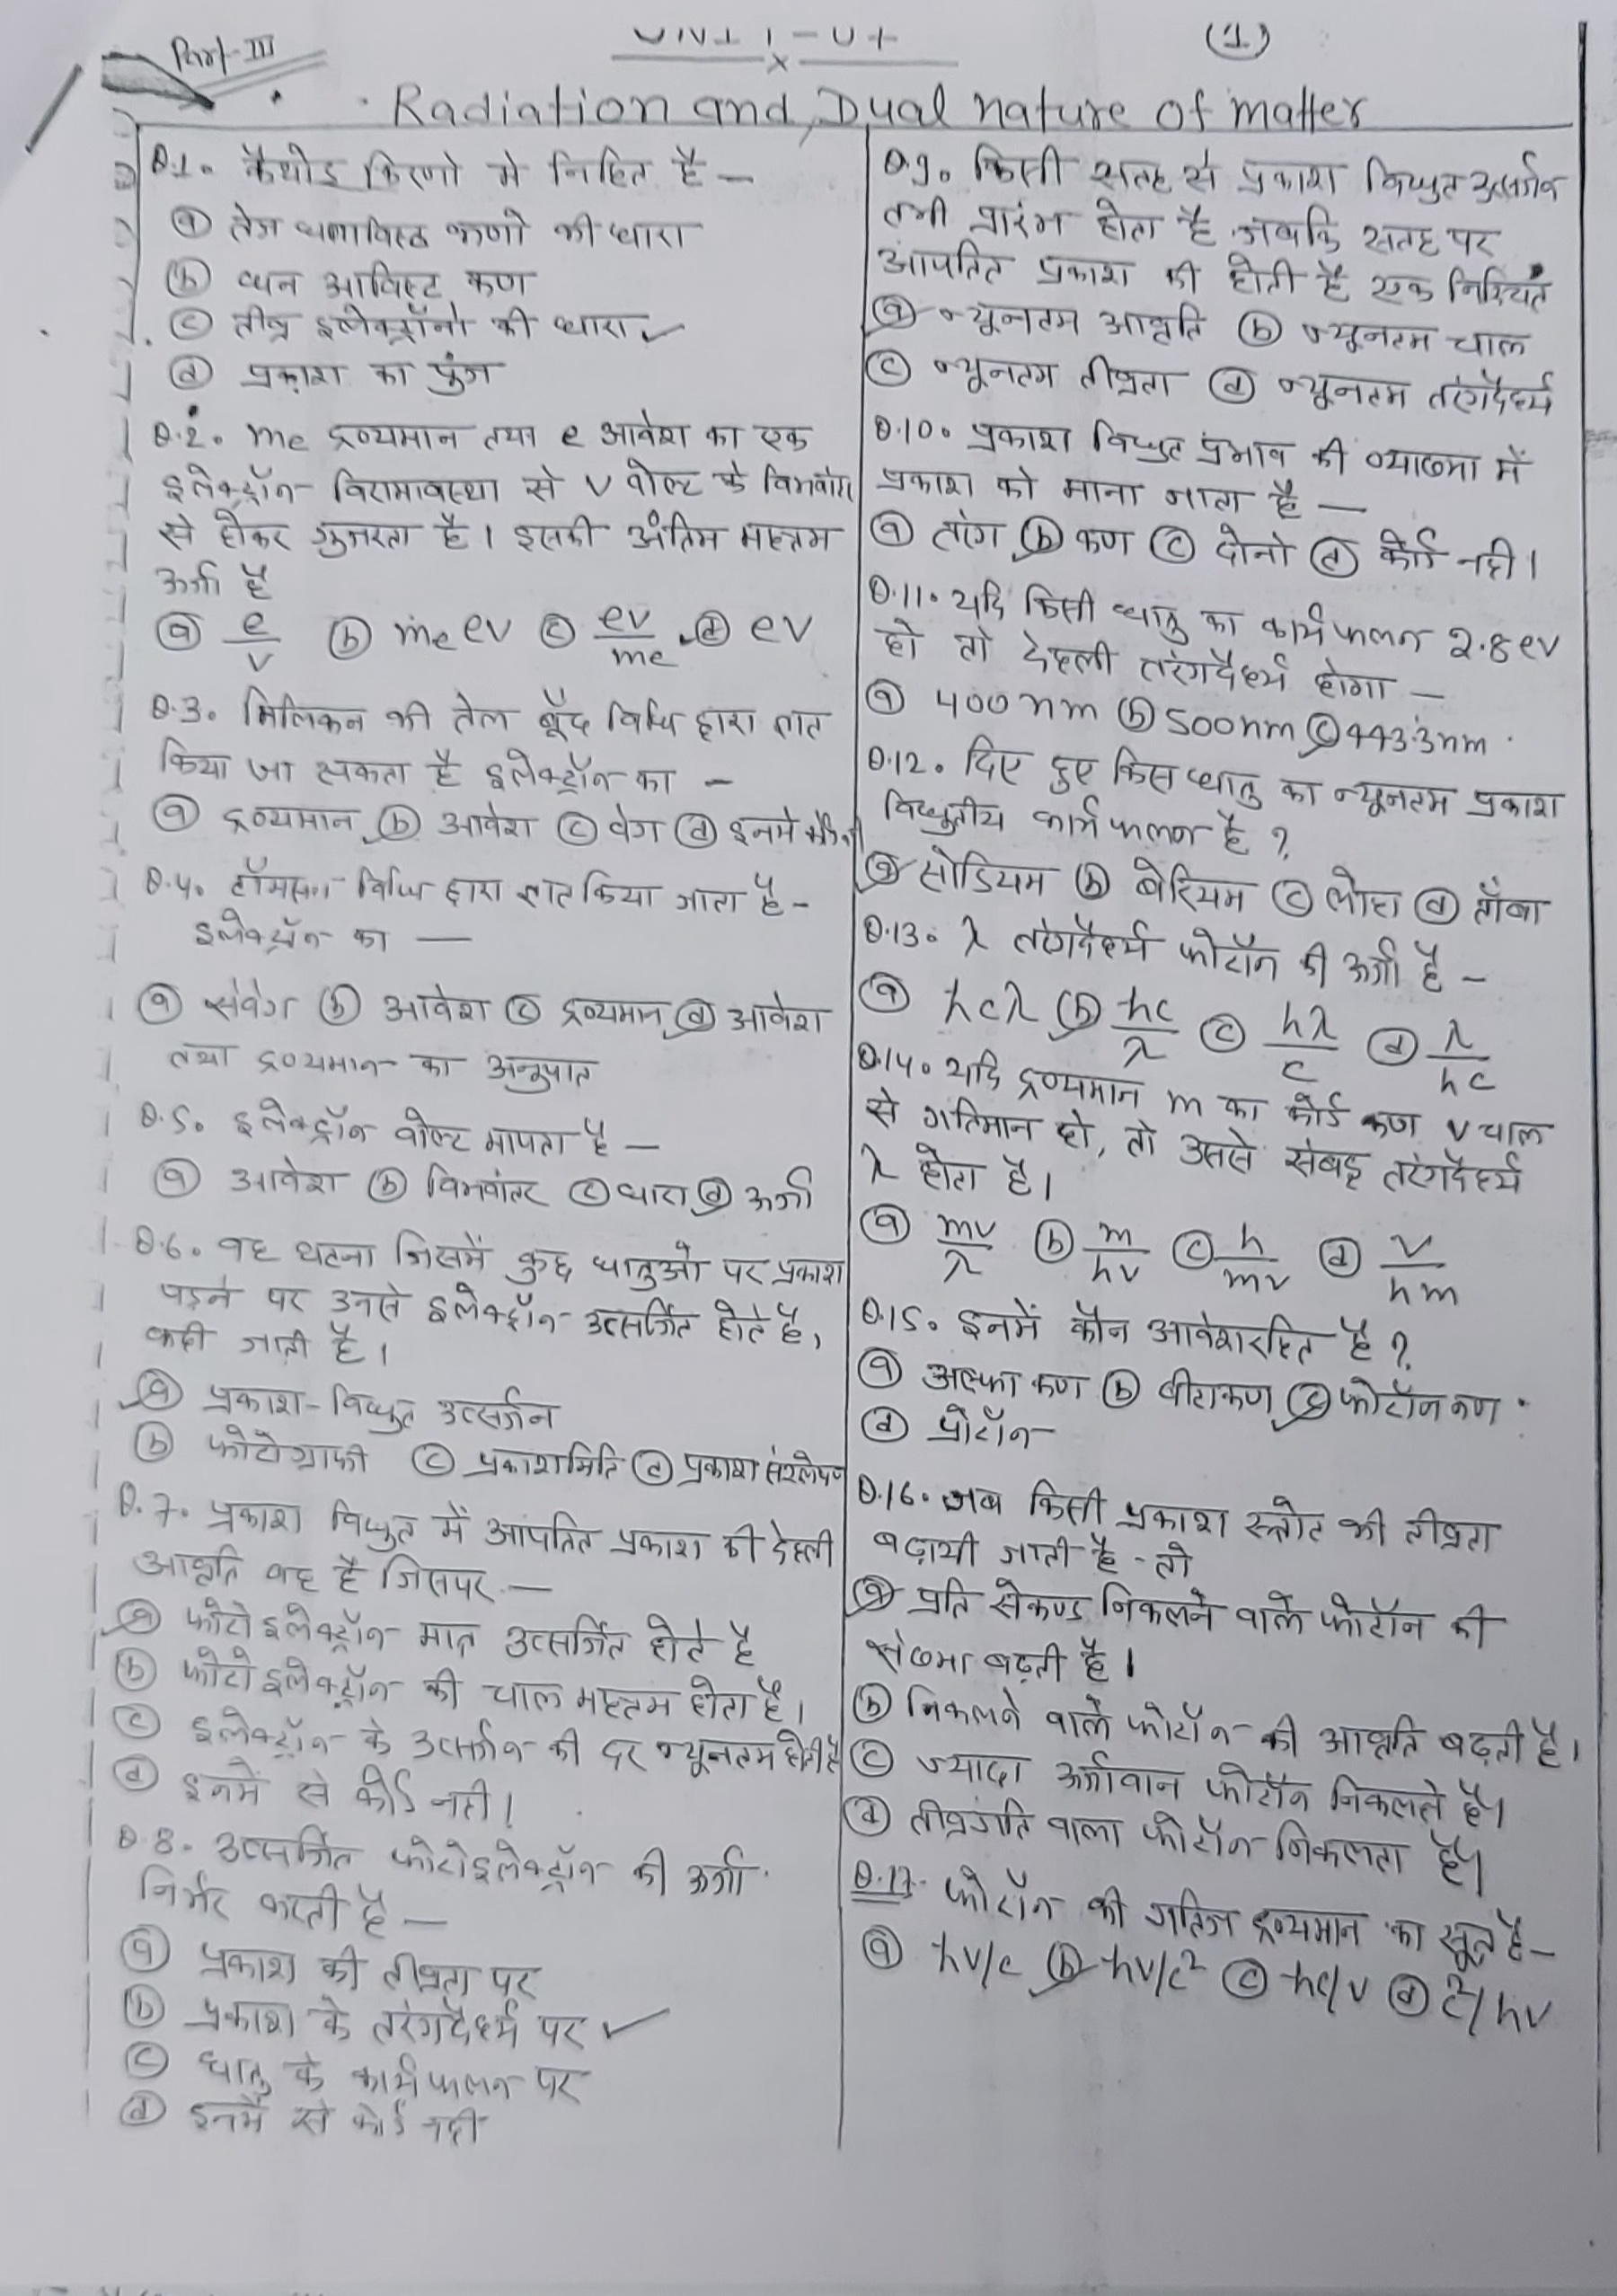 Part-III
(1)
Radiation and Dual nature of matter
Q.1. कैथोड किरणो मे निहित है —
(a) तेज धनाविष्ठ कणो की धारा
(b) धन आविष्ट कण
(c) तीव्र इलेक्ट्रॉनो की धारा ✓
(d) प्रकाश का पुंज
Q.2. me द्रव्यमान तथा e आवेश का एक
इलेक्ट्रॉन विरामावस्था से V वोल्ट के विभवांतर
से होकर गुजरता है। इसकी अंतिम महत्तम
ऊर्जा है
(a) e/V (b) me eV (c) eV/me (d) eV
Q.3. मिलिकन की तेल बूँद विधि द्वारा ज्ञात
किया जा सकता है इलेक्ट्रॉन का —
(a) द्रव्यमान (b) आवेश (c) वेग (d) इनमे
Q.4. टॉमसन विधि द्वारा ज्ञात किया जाता है -
इलेक्ट्रॉन का —
(a) संवेग (b) आवेश (c) द्रव्यमान (d) आवेश
तथा द्रव्यमान का अनुपात
Q.5. इलेक्ट्रॉन वोल्ट मापता है —
(a) आवेश (b) विभवांतर (c) धारा (d) ऊर्जा
Q.6. वह घटना जिसमें कुछ धातुओ पर प्रकाश
पड़ने पर उनसे इलेक्ट्रॉन उत्सर्जित होते है,
कही जाती है।
(a) प्रकाश-विधुत उत्सर्जन
(b) फोटोग्राफी (c) प्रकाशमिति (d) प्रकाश संश्लेषण
Q.7. प्रकाश विधुत में आपतित प्रकाश की देहली
आवृति वह है जिसपर —
(a) फोटो इलेक्ट्रॉन मात्र उत्सर्जित होते है
(b) फोटो इलेक्ट्रॉन की चाल महत्तम होता है।
(c) इलेक्ट्रॉन के उत्सर्जन की दर न्यूनतम होती है
(d) इनमें से कोई नही।
Q.8. उत्सर्जित फोटोइलेक्ट्रॉन की ऊर्जा
निर्भर करती है —
(a) प्रकाश की तीव्रता पर
(b) प्रकाश के तरंगदैर्ध्य पर ✓
(c) धातु के कार्यफलन पर
(d) इनमें से कोई नही
Q.9. किसी सतह से प्रकाश विधुत उत्सर्जन
तभी प्रारंभ होता है जबकि सतह पर
आपतित प्रकाश की होती है एक निश्चित
(a) न्यूनतम आवृति (b) न्यूनतम चाल
(c) न्यूनतम तीव्रता (d) न्यूनतम तरंगदैर्ध्य
Q.10. प्रकाश विधुत प्रभाव की व्याख्या में
प्रकाश को माना जाता है —
(a) तरंग (b) कण (c) दोनो (d) कोई नही।
Q.11. यदि किसी धातु का कार्यफलन 2.8 eV
हो तो देहली तरंगदैर्ध्य होगा —
(a) 400 nm (b) 500nm (c) 443.3nm
Q.12. दिए हुए किस धातु का न्यूनतम प्रकाश
विधुतीय कार्यफलन है ?
(a) सोडियम (b) बेरियम (c) लोहा (d) ताँबा
Q.13. λ तरंगदैर्ध्य फोटॉन की ऊर्जा है —
(a) hcλ (b) hc/λ (c) hλ/c (d) λ/hc
Q.14. यदि द्रव्यमान m का कोई कण v चाल
से गतिमान हो, तो उससे संबद्ध तरंगदैर्ध्य
λ होता है।
(a) mv/λ (b) m/hv (c) h/mv (d) v/hm
Q.15. इनमें कौन आवेशरहित है ?
(a) अल्फा कण (b) बीटाकण (c) फोटॉन कण
(d) प्रोटॉन
Q.16. जब किसी प्रकाश स्त्रोत की तीव्रता
बढ़ायी जाती है - तो
(a) प्रति सेकण्ड निकलने वाले फोटॉन की
संख्या बढ़ती है।
(b) निकलने वाले फोटॉन की आवृति बढ़ती है।
(c) ज्यादा ऊर्जावान फोटॉन निकलते है।
(d) तीव्रगति वाला फोटॉन निकलता है।
Q.17. फोटॉन की गतिज द्रव्यमान का सूत्र है —
(a) hν/c (b) hν/c² (c) hc/ν (d) c²/hν